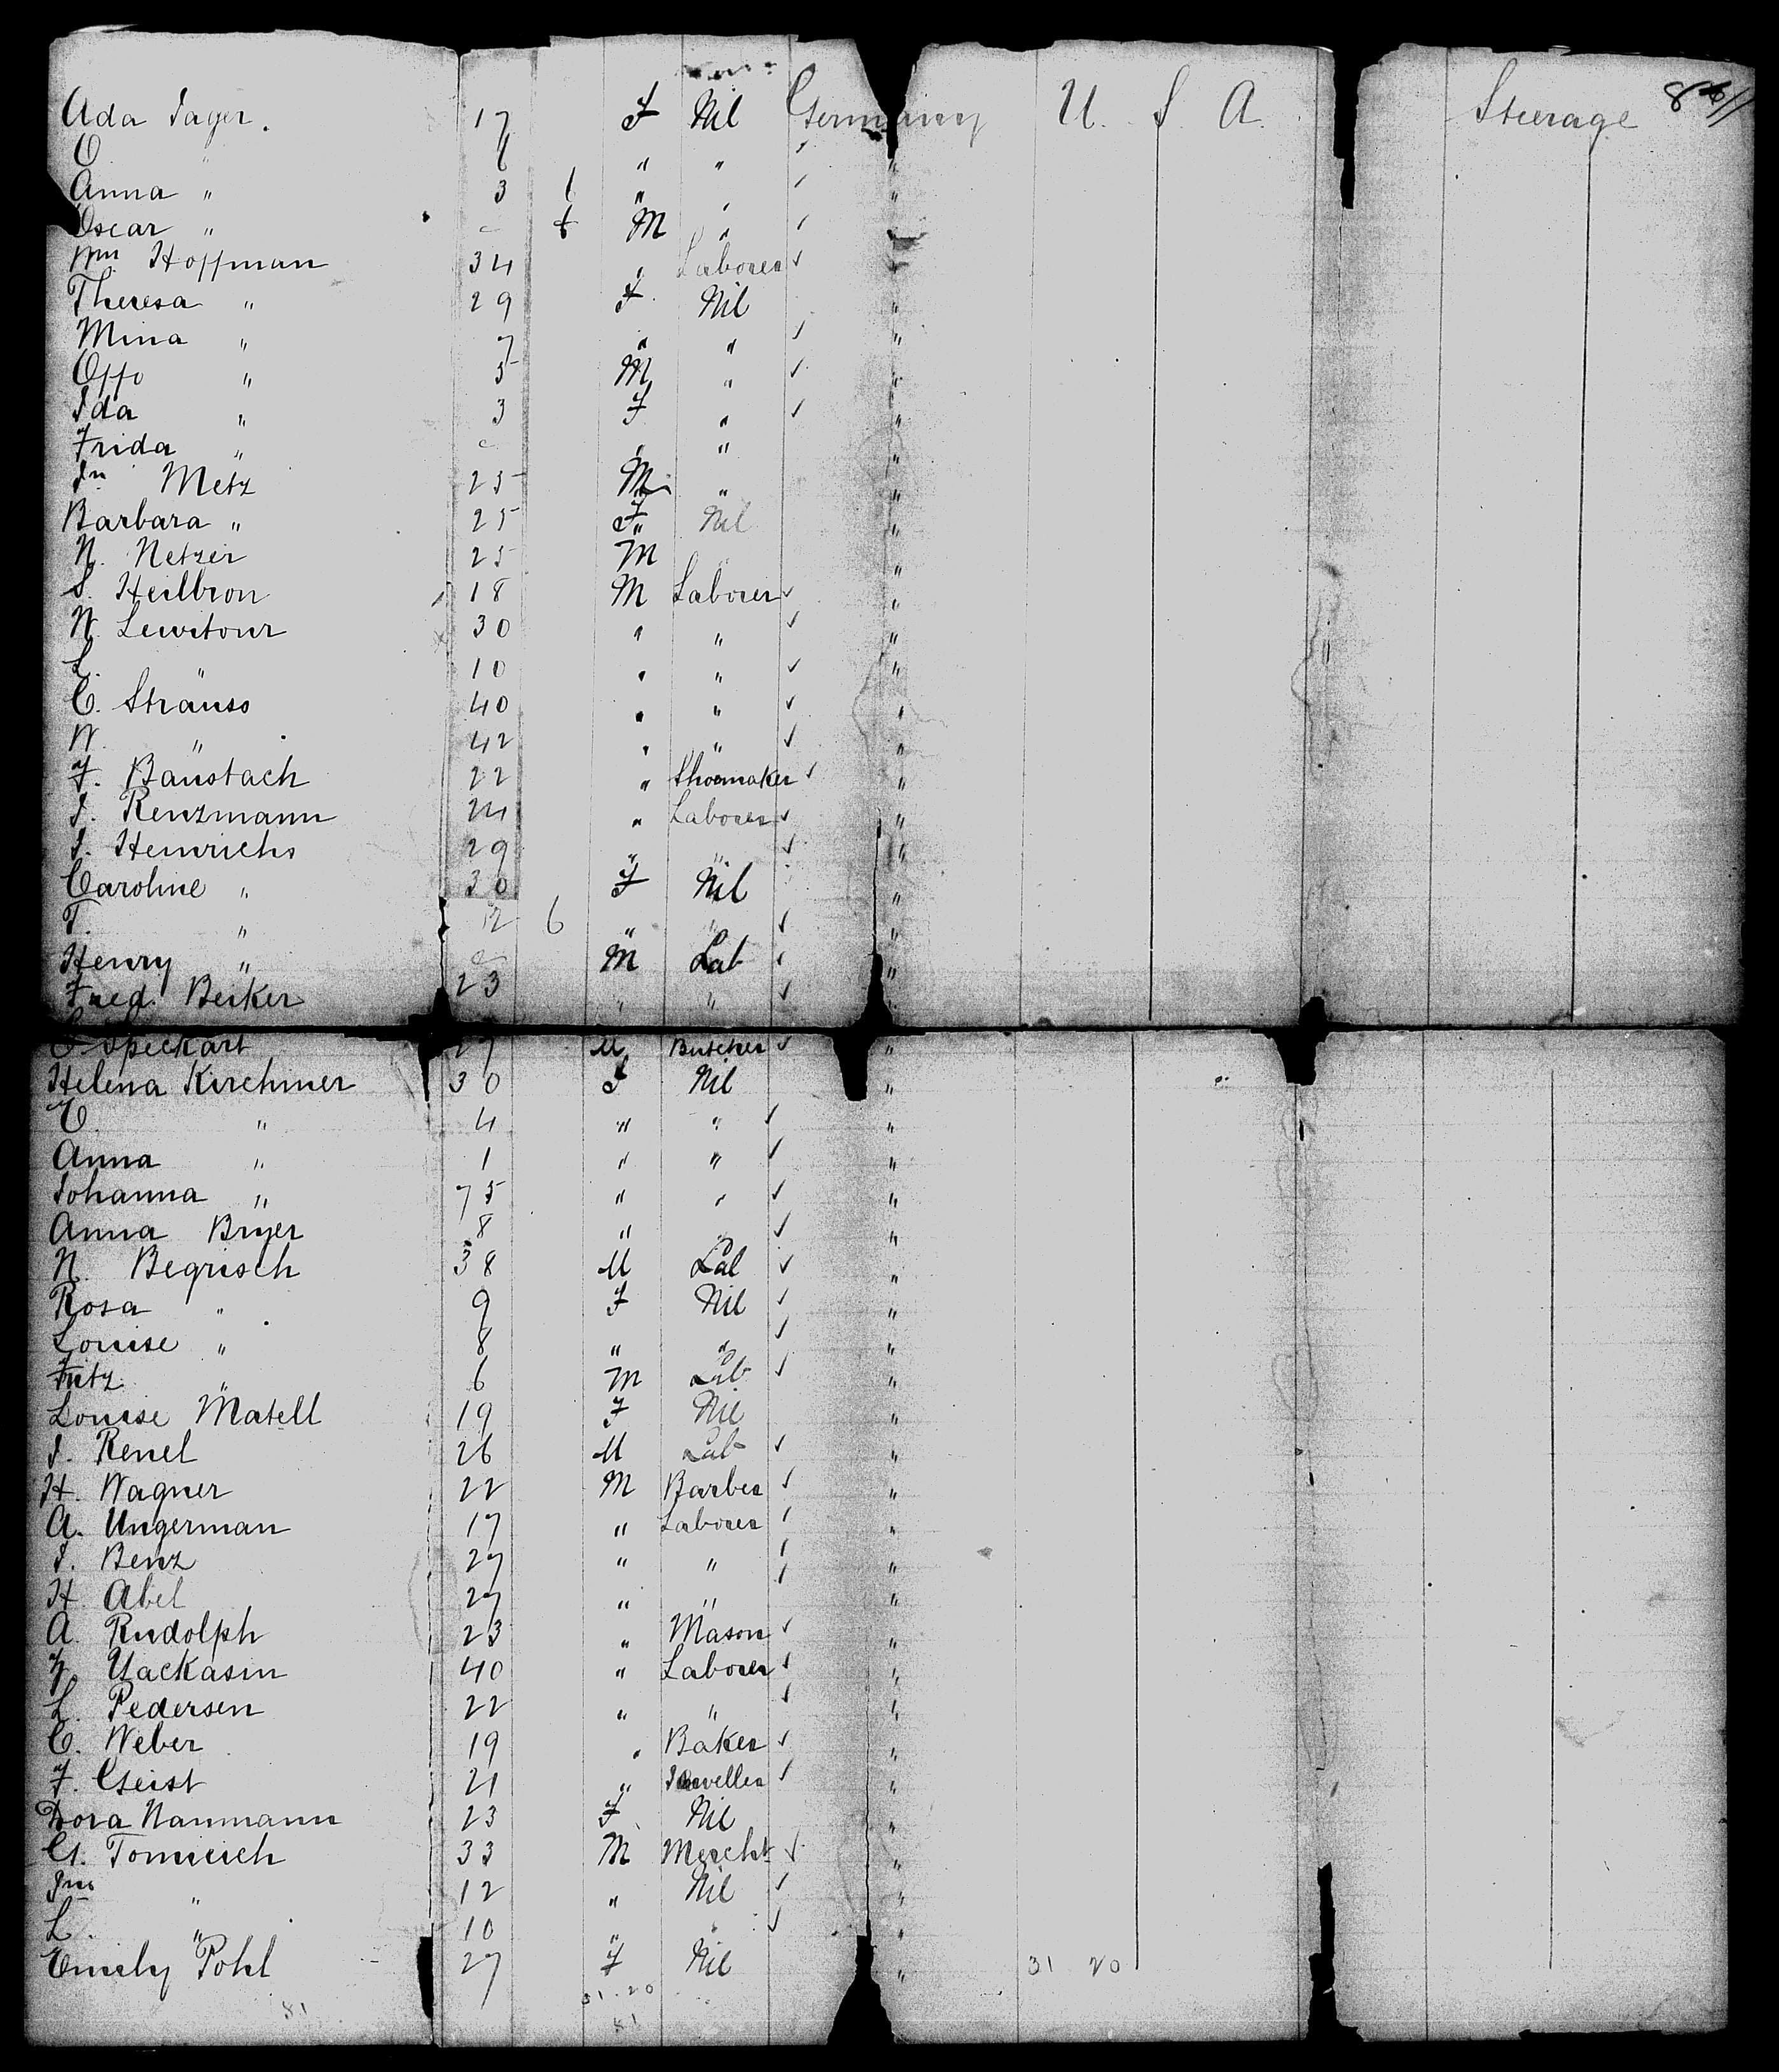 Ada Jager. 17 F Nil Germany U. S. A. Steerage
O " 6 " " "
Anna " 3 " " "
Oscar " M " "
Wm Hoffman 34 " Laborer "
Theresa " 29 F. Nil "
Mina " 7 " " "
Otto " 5 M " "
Ida " 3 F " "
Frida " " " "
Jn Metz 25 M " "
Barbara " 25 F Nil "
N. Netzer 25 M "
S. Heilbron 18 M Laborer "
N. Lewitour 30 " " "
L. " 10 " " "
C. Strauss 40 " " "
W. " 42 " " "
F. Baustach 22 " Shoemaker "
J. Renzmann 24 " Laborer "
J. Heinrichs 29 " " "
Caroline " 30 F Nil "
T. " 6 " " "
Henry " M Lab "
Fred. Becker 23 " " "
Speckart 27 M Butcher "
Helena Kirchmer 30 F Nil "
E. " 4 " " "
Anna " 1 " " "
Johanna " 75 " " "
Anna Bryer 8 " " "
N. Begrisch 38 M Lab "
Rosa " 9 F Nil "
Louise " 8 " " "
Fritz " 6 M Lab "
Louise Matell 19 F Nil "
J. Renel 26 M Lab "
H. Wagner 22 M Barber "
A. Ungerman 17 " Laborer "
J. Benz 27 " " "
H. Abel 27 " " "
A. Rudolph 23 " Mason "
Yackasin 40 " Laborer "
L. Pedersen 22 " " "
C. Weber 19 " Baker "
F. Geist 21 " Jeweller "
Dora Naumann 23 F Nil "
G. Tomieich 33 M Mercht "
Jno " 12 " Nil "
L. " 10 " " "
Emily Pohl 27 F Nil " 31 20
81 31.20
81